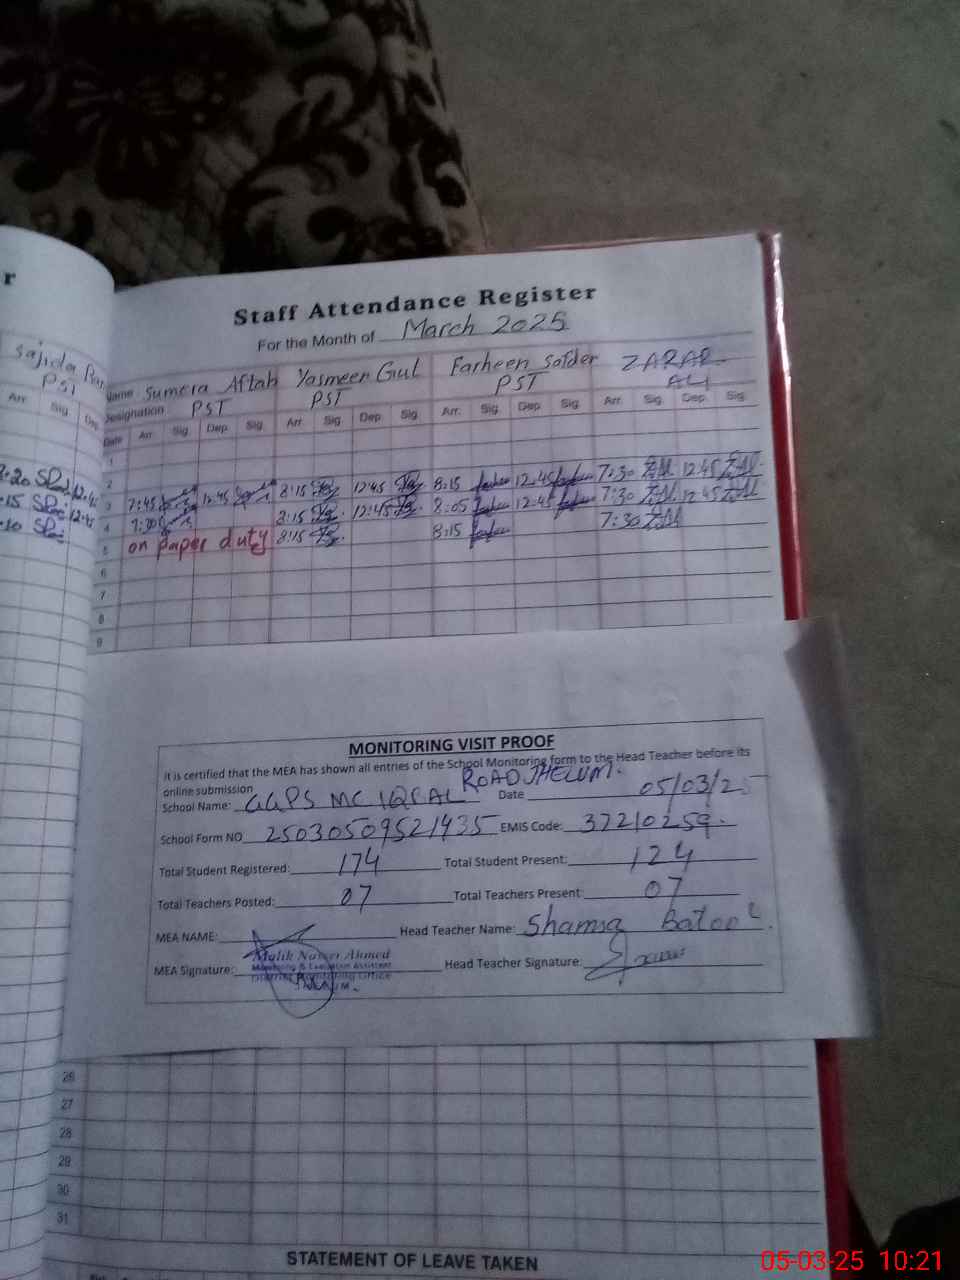 r
Staff Attendance Register
For the Month of March 2025
Sajida
PST
Arr. Sig. Dep.
Name Sumera Aftab Yasmeen Gul Farheen Safder ZARAR ALI
Designation PST PST PST
Date Arr. Sig. Dep. Sig. Arr. Sig. Dep. Sig. Arr. Sig. Dep. Sig. Arr. Sig. Dep. Sig.
1
2
3 7:45 12:45 8:15 12:45 8:15 12:45 7:30 12:45
4 7:30 8:15 12:45 8:05 12:45 7:30 12:45
5 on paper duty 8:15 8:15 7:30
6
7
8
9
MONITORING VISIT PROOF
It is certified that the MEA has shown all entries of the School Monitoring form to the Head Teacher before its
online submission
School Name: GGPS MC IQBAL ROAD JHELUM. Date 05/03/25
School Form NO 25030509521435 EMIS Code: 37210259.
Total Student Registered: 174 Total Student Present: 124
Total Teachers Posted: 07 Total Teachers Present: 07
MEA NAME: Head Teacher Name: Shamsa Batool.
Malik Nasir Ahmed
Monitoring & Evaluation Assistant
District Monitoring Office
JHELUM.
MEA Signature: Head Teacher Signature:
26
27
28
29
30
31
STATEMENT OF LEAVE TAKEN
05-03-25 10:21